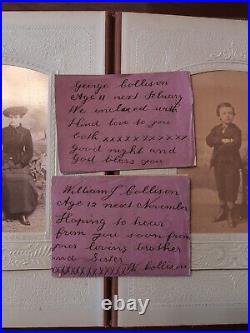 George Collison
Age 11 next Febuary
We inclosed with
kind love to you
both xxxxxxxxxxx
Good night and
God bless you
William J Collison
Age 12 next November
Hoping to hear
from you soon from
your loveing brother
and Sister
xxxxxxxxxxxxx Collison